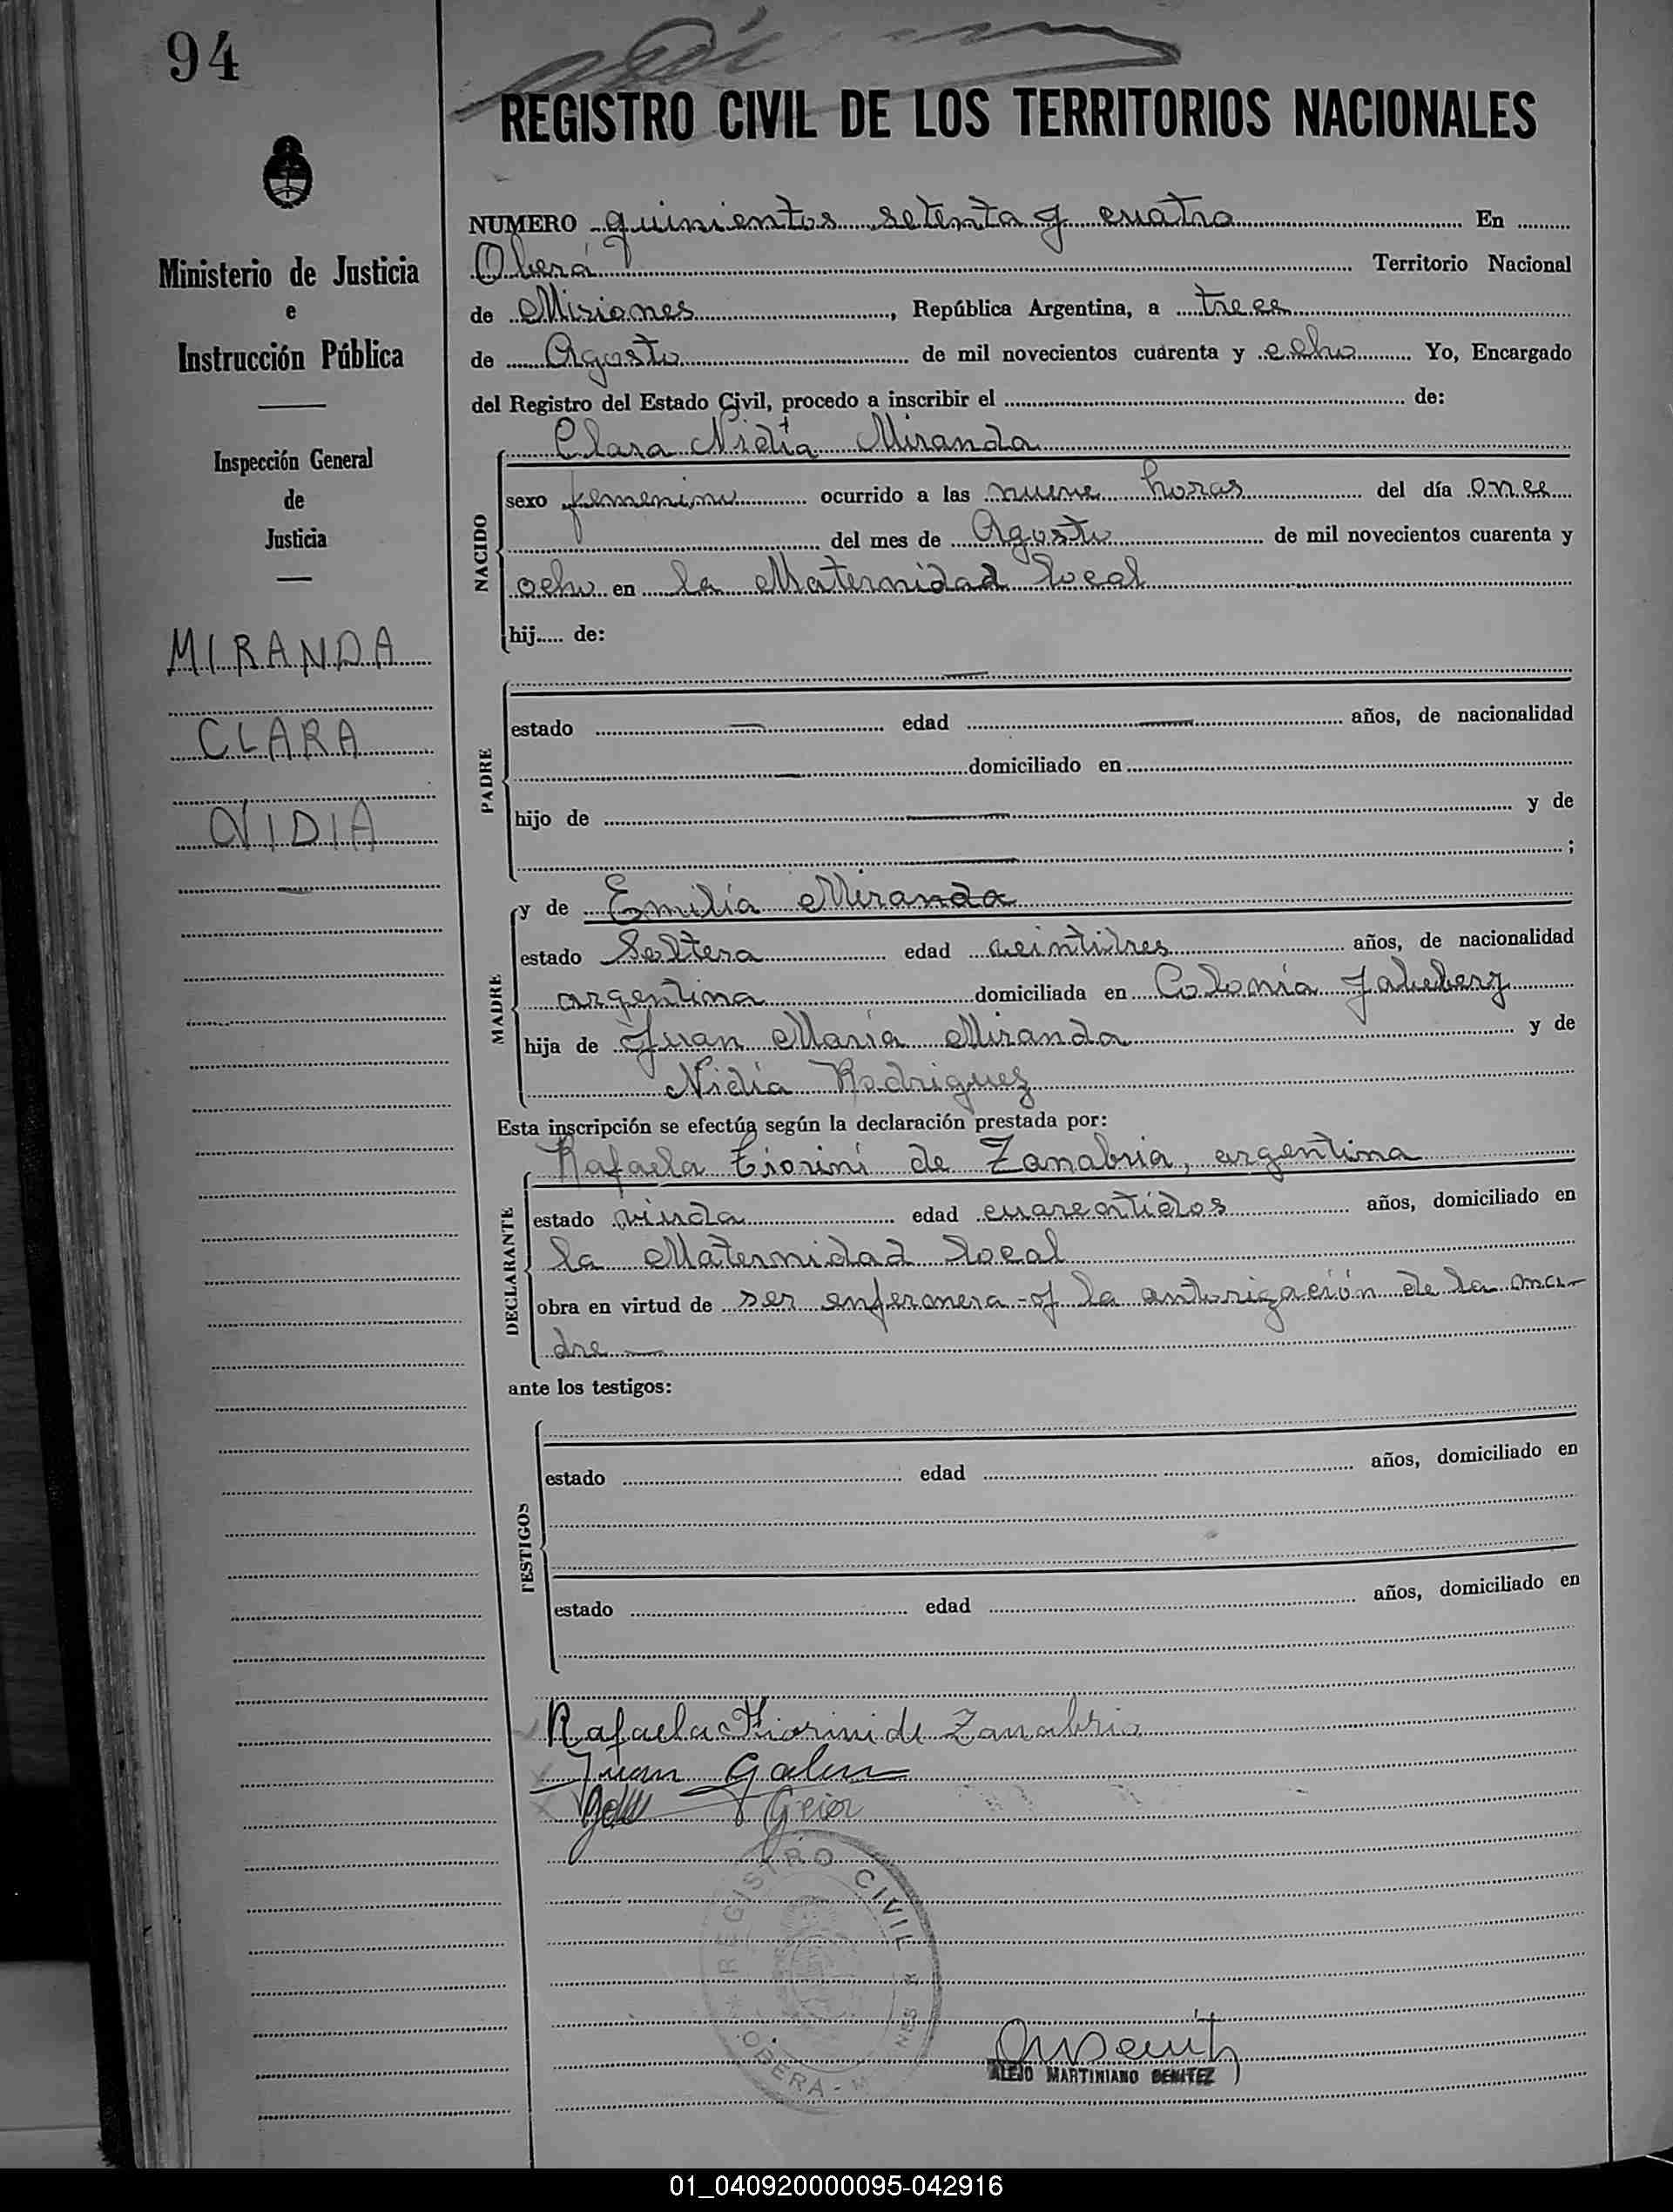 94
REGISTRO CIVIL DE LOS TERRITORIOS NACIONALES
Ministerio de Justicia
e
Instrucción Pública
Inspección General
de
Justicia
MIRANDA
CLARA
NIDIA
NUMERO quinientos setenta y cuatro En
Oberá Territorio Nacional
de Misiones, República Argentina, a trece
de Agosto de mil novecientos cuarenta y ocho Yo, Encargado
del Registro del Estado Civil, procedo a inscribir el de:
Clara Nidia Miranda
NACIDO
sexo femenino ocurrido a las nueve horas del día once
del mes de Agosto de mil novecientos cuarenta y
ocho en la Maternidad local
hij de:
PADRE
estado edad años, de nacionalidad
domiciliado en
hijo de y de
;
MADRE
y de Emilia Miranda
estado Soltera edad veintitres años, de nacionalidad
argentina domiciliada en Colonia
hija de Juan Maria Miranda y de
Nidia Rodriguez
Esta inscripción se efectúa según la declaración prestada por:
Rafaela Fiorini de Zanabria, argentina
DECLARANTE
estado viuda edad cuarentidos años, domiciliado en
la Maternidad local
obra en virtud de ser enfermera - y la autorización de la ma-
dre —
ante los testigos:
TESTIGOS
estado edad años, domiciliado en
estado edad años, domiciliado en
Rafaela Fiorini de Zanabria
Juan
REGISTRO CIVIL
OBERA - M NES
ALEJO MARTINIANO BENITEZ
01_040920000095-042916